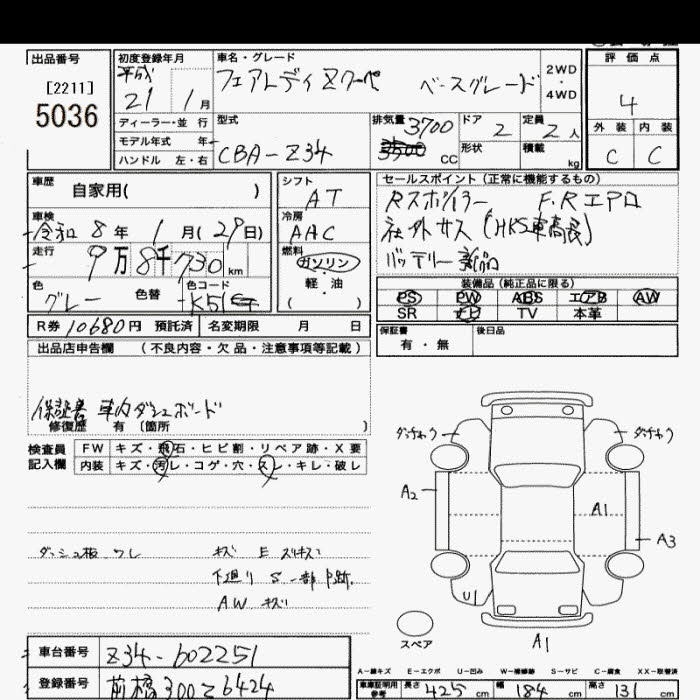 出品番号
[2211]
5036
初度登録年月
平成
21 1月
ディーラー・並行
モデル年式 年
ハンドル 左・右
車名・グレード
フェアレディZクーペ ベースグレード
2WD
・
4WD
型式
CBA-Z34
排気量
3700
3500 CC
ドア
2
定員
2人
形状
積載
kg
評価点
4
外装 内装
C C
車歴
自家用( )
車検
令和 8年 1月(29日)
走行
9万8千730km
色
グレー
色替
色コード
K51
シフト
AT
冷房
AAC
燃料
ガソリン
軽・油
( )
セールスポイント(正常に機能するもの)
Rスポイラー F.Rエアロ
社外サス(HKS車高長)
バッテリー新品
装備品(純正品に限る)
PS PW ABS エアB AW
SR ナビ TV 本革
R券 10680円 預託済 名変期限 月 日
保証書
有・無
後日品
出品店申告欄 (不良内容・欠品・注意事項等記載)
保証書 車内ダッシュボード
修復歴 有〔箇所 〕
検査員
記入欄
FW キズ・飛石・ヒビ割・リペア跡・X要
内装 キズ・汚レ・コゲ・穴・スレ・キレ・破レ
ダッシュ板 ワレ キズ E スリキズ
下廻り S 一部P跡.
AW キズ
A2
A1
A3
U1
スペア
A1
車台番号
Z34-602251
登録番号
前橋300 6424
A-線キズ E-エクボ U-凹み W-補修跡 S-サビ C-腐食 XX-取替済
車庫証明用
参考
長さ 425cm 幅 184cm 高さ 131cm